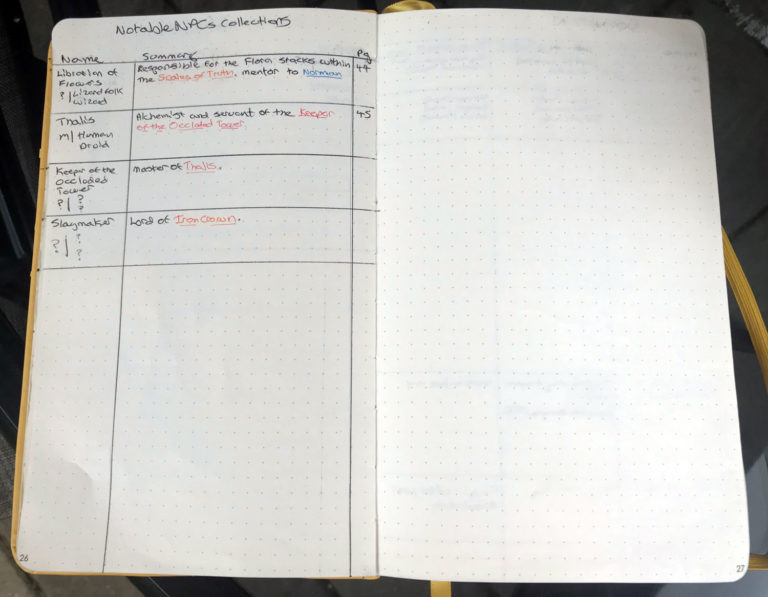 Notable NPCs Collections
Name Summary Pg
Librarian of Responsible for the Flora stacks within 44
Flowers the Scales of Truth. mentor to Norman
? / Lizardfolk
Wizard
Thalis Alchemist and servant of the Keeper 45
m / Human of the Occluded Tower.
Druid
Keeper of the master of Thalis.
Occluded
Tower
? / ?
?
Slaymaker Lord of Iron Crown.
? / ?
?
26
27